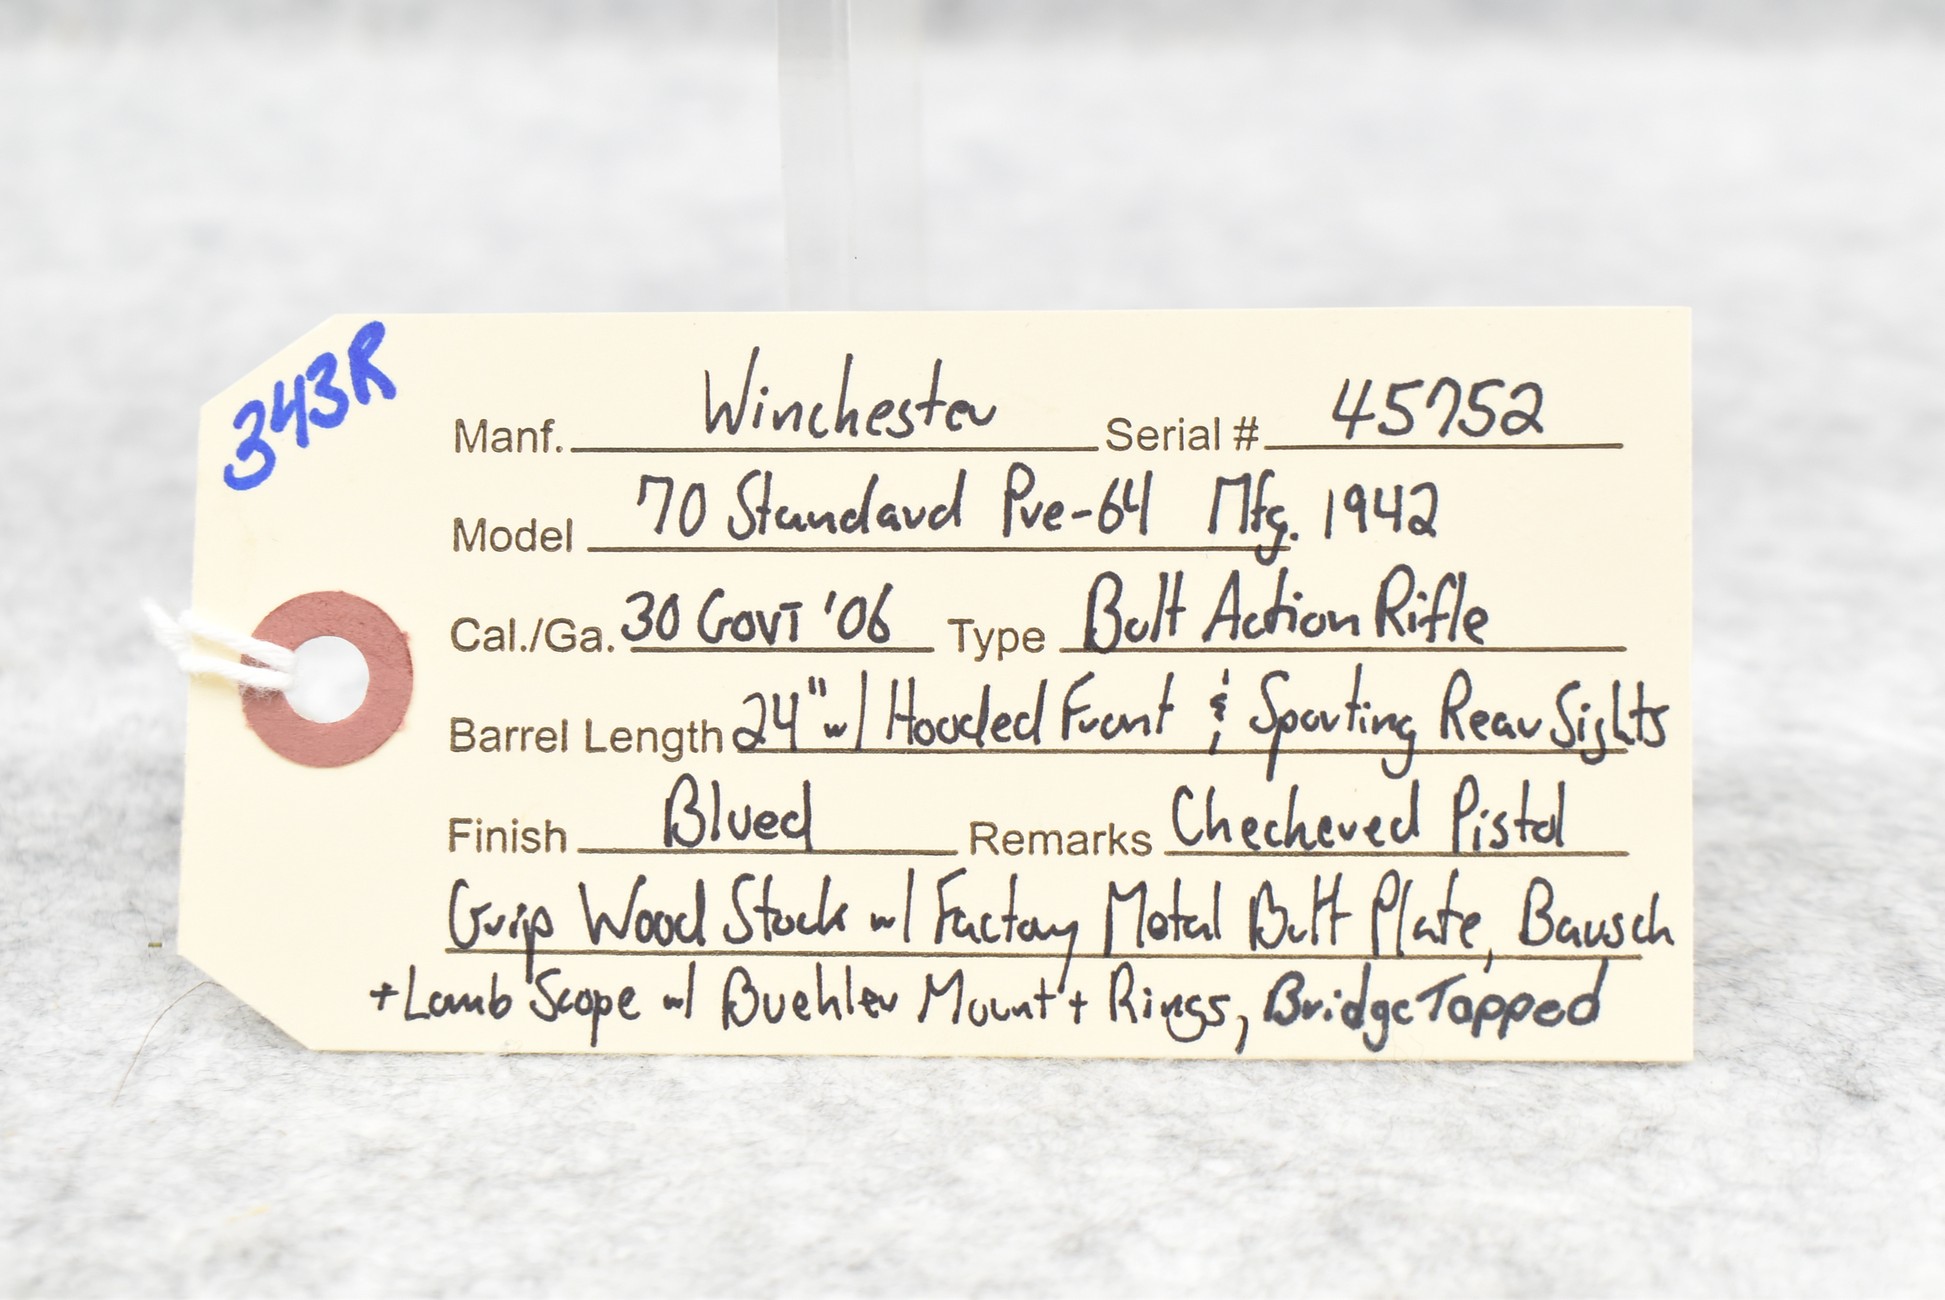 343R
Manf. Winchester Serial # 45752
Model 70 Standard Pre-64 Mfg. 1942
Cal./Ga. 30 GOVT '06 Type Bolt Action Rifle
Barrel Length 24" w/ Hooded Front & Sporting Rear Sights
Finish Blued Remarks Checkered Pistol
Grip Wood Stock w/ Factory Metal Butt Plate, Bausch
+ Lomb Scope w/ Buehler Mount + Rings, Bridge Tapped